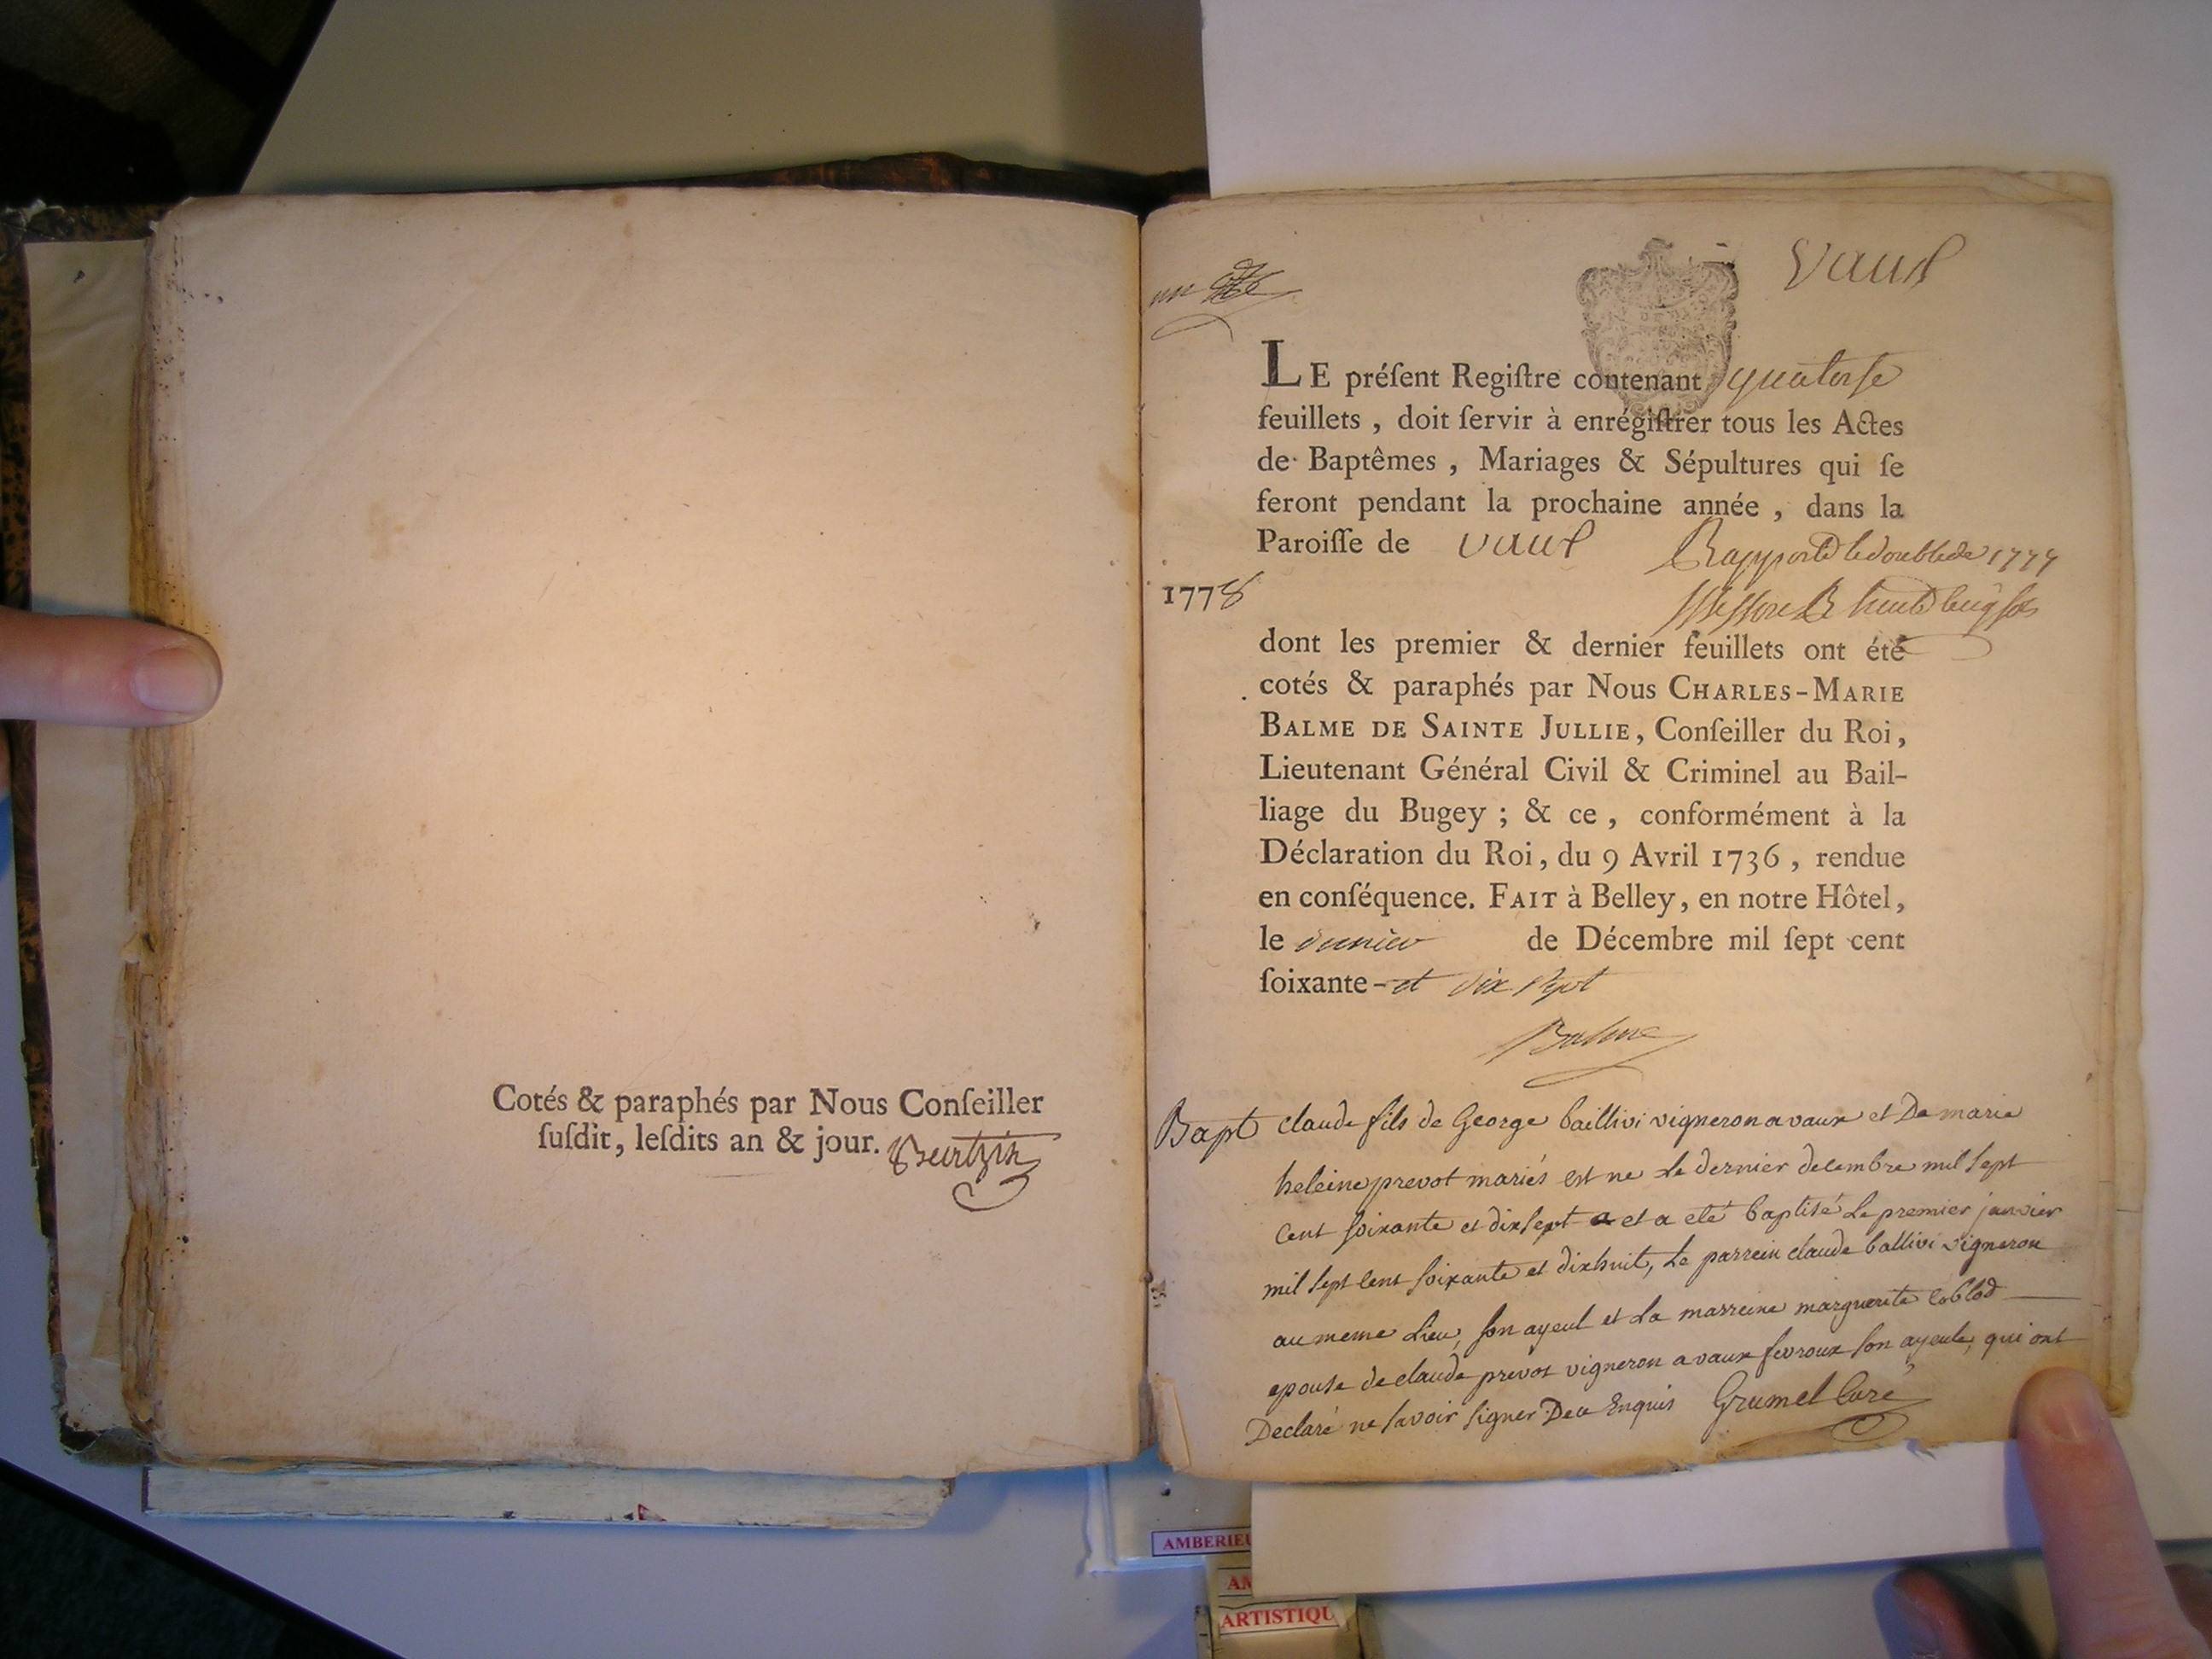 Cotés & paraphés par Nous Conſeiller
ſuſdit, leſdits an & jour.
un
Vaux
LE préſent Regiſtre contenant quatorſe
feuillets , doit ſervir à enrégiſtrer tous les Actes
de Baptêmes , Mariages & Sépultures qui ſe
feront pendant la prochaine année , dans la
Paroiſſe de vaux
Rapporté le double de 1777
1778
dont les premier & dernier feuillets ont été
cotés & paraphés par Nous CHARLES-MARIE
BALME DE SAINTE JULLIE, Conſeiller du Roi,
Lieutenant Général Civil & Criminel au Bail-
liage du Bugey ; & ce , conformément à la
Déclaration du Roi, du 9 Avril 1736 , rendue
en conſéquence. FAIT à Belley, en notre Hôtel,
le dernier de Décembre mil ſept cent
ſoixante - et dix ſept
Balme
Bapt claude fils de George baillivi vigneron a vaux et De marie
heleine prevot mariés est ne Le dernier decembre mil sept
cent soixante et dixsept et a eté baptisé Le premier janvier
mil sept cent soixante et dixhuit, Le parrein claude ballivi vigneron
au meme Lieu, son ayeul et La marreine marguerite Coblod
epouse de claude prevot vigneron a vaux fevroux son ayeule, qui ont
Declaré ne savoir signer De ce Enquis Grumel Curé
AMBERIEU
AM
ARTISTIQU